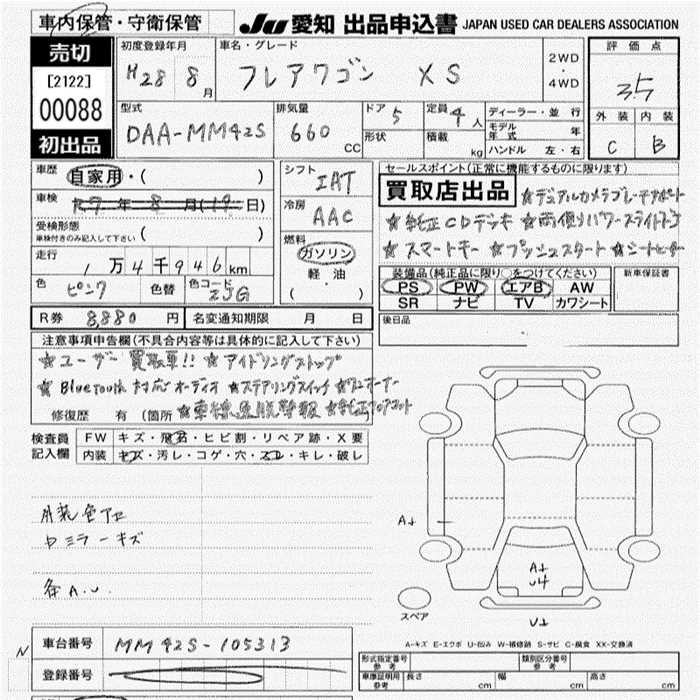 車内保管・守衛保管
JU 愛知 出品申込書 JAPAN USED CAR DEALERS ASSOCIATION
売切
[2122]
00088
初出品
初度登録年月
H28 8月
車名・グレード
フレアワゴン XS
2WD
・
4WD
評価点
3.5
外装 内装
C B
型式
DAA-MM42S
排気量
660 CC
ドア 5
形状
定員 4人
積載 kg
ディーラー・並行
モデル年式 年
ハンドル 左・右
車歴 自家用・( )
車検 R7年8月(19日)
受検形態
車検付きのみ記入して下さい ( )
走行 1万4千946km
色 ピンク 色替 色コード ZJG
シフト IAT
冷房 AAC
燃料
ガソリン
軽油
( )
セールスポイント(正常に機能するものに限ります)
買取店出品 ☆デュアルカメラブレーキサポート
☆純正CDデッキ ☆両側パワースライドドア
☆スマートキー ☆プッシュスタート ☆シートヒーター
装備品(純正品に限り○をつけてください)
PS PW エアB AW
SR ナビ TV カワシート
新車保証書
R券 8,880円 名変通知期限 月 日
後日品
注意事項申告欄(不具合内容等は具体的に記入して下さい)
☆ユーザー買取車!! ☆アイドリングストップ
☆Bluetooth対応オーディオ ☆ステアリングスイッチ ☆ワンオーナー
修復歴 有 (箇所 ☆車線逸脱警報 ☆純正フロアマット
検査員記入欄
FW キズ・飛石・ヒビ割・リペア跡・X要
内装 キズ・汚レ・コゲ・穴・スレ・キレ・破レ
内装色アセ
ミラーキズ
各A.U.
A↓
A↓
U4
U↓
スペア
A-キズ E-エクボ U-凹み W-補修跡 S-サビ C-腐食 XX-交換済
N
車台番号 MM42S-105313
登録番号
形式指定番号
参考
類別区分番号
参考
車庫証明用
参考
長さ cm 幅 cm 高さ cm